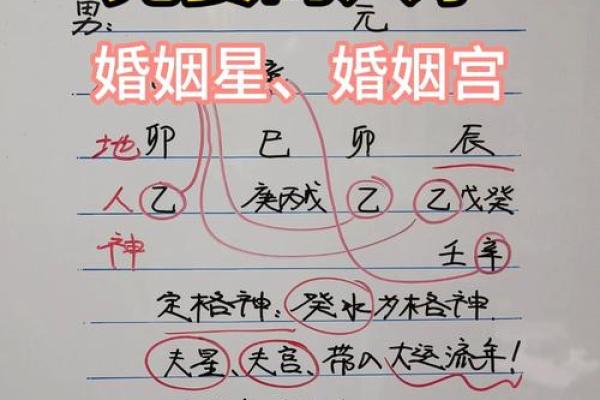 男: 元
婚姻星、婚姻宫
地 卯 巳 卯 辰
人 乙 庚丙戊 乙 乙戊癸
神 壬辛
定格神: 癸水为格神.
夫星、夫宫、带入大运流年!